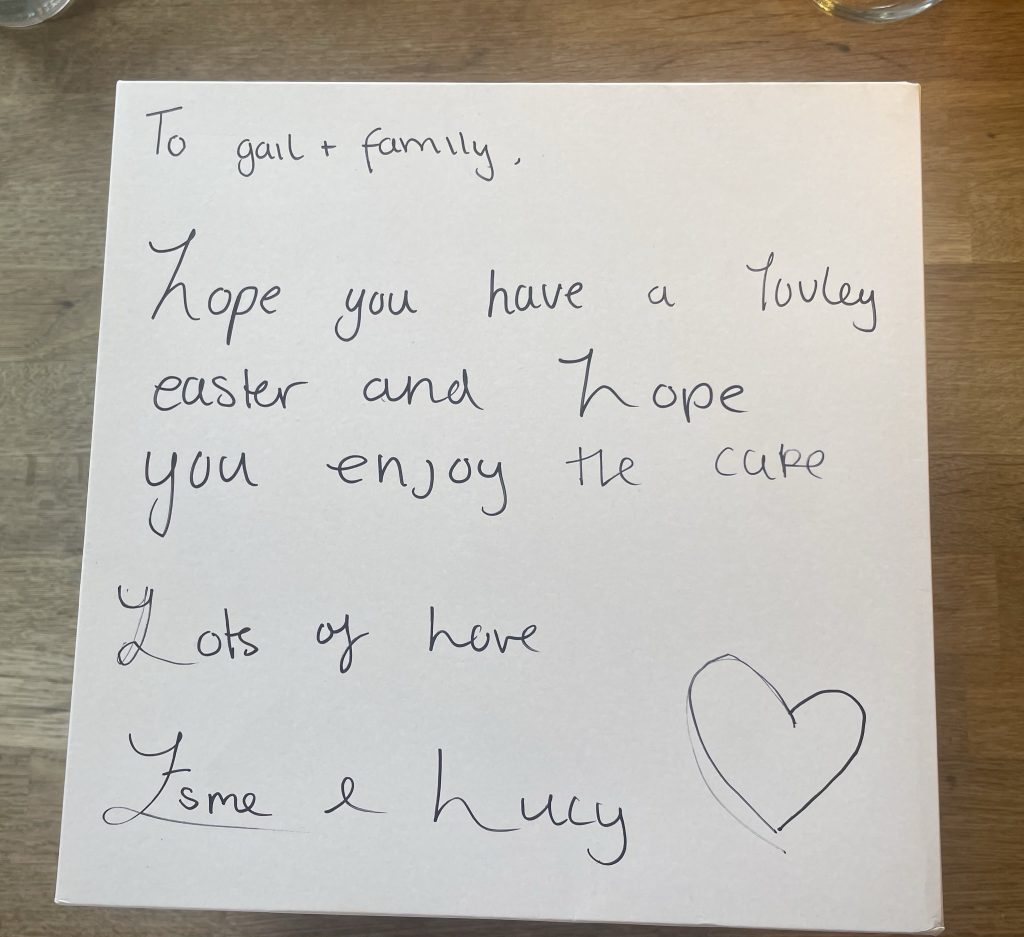 To gail + family,
hope you have a lovley
easter and hope
you enjoy the cake
Lots of love
Esme & Lucy